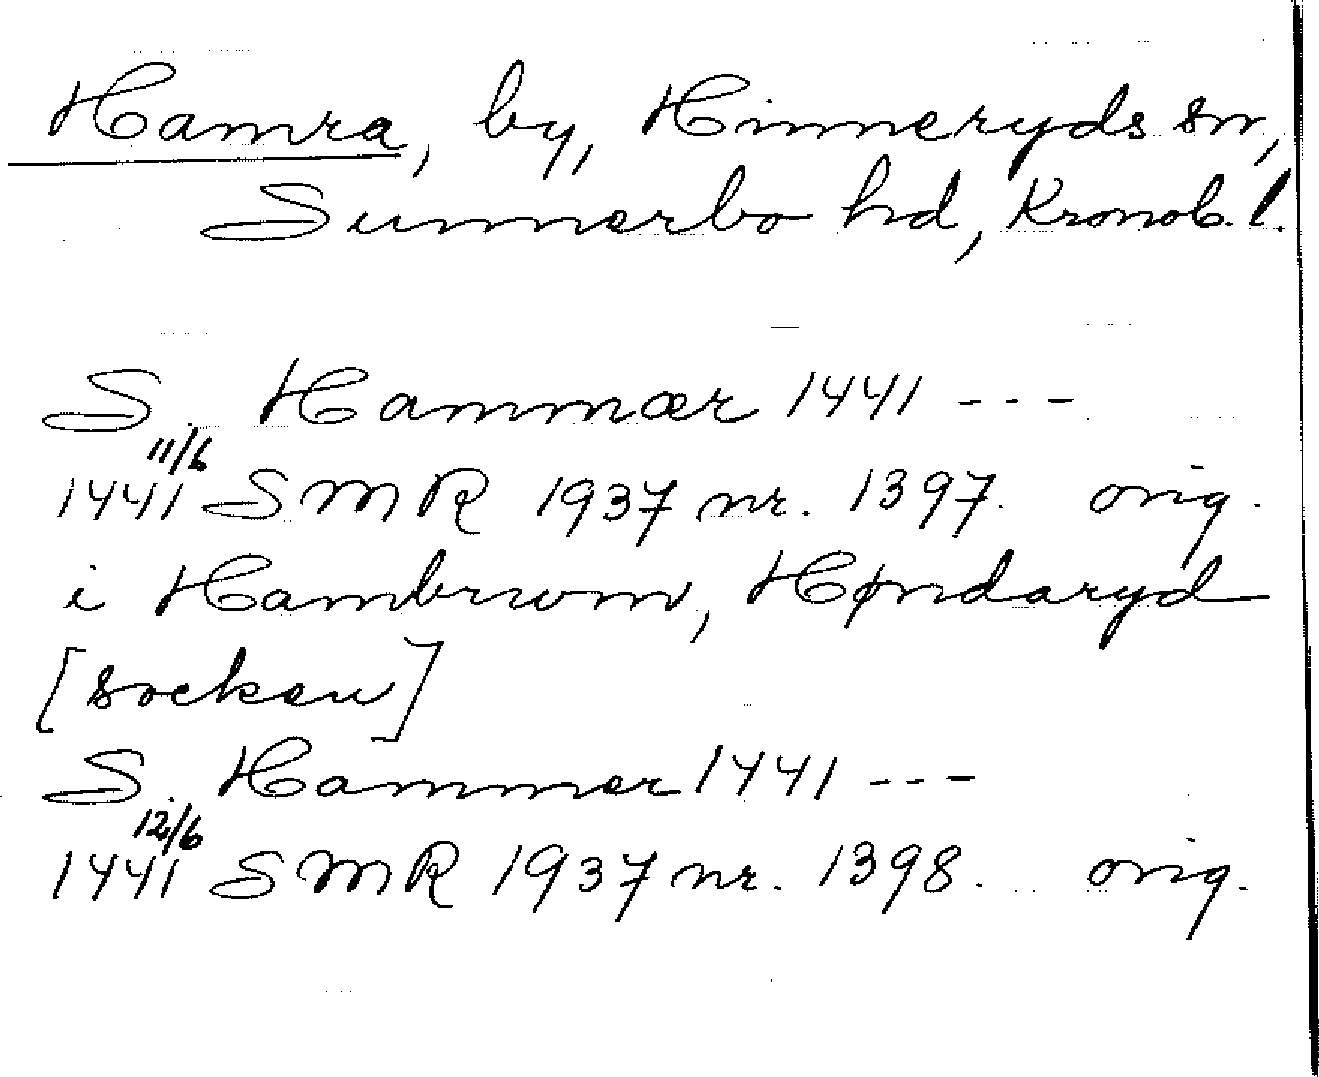 Hamra, by, Hinneryds sn,
Sunnerbo hd, Kronob. l.
S. Hammær 1441 ---
11/6
1441 SMR 1937 nr. 1397. orig.
i Hambrwm, Høndaryd
[socken]
S. Hammer 1441 ---
12/6
1441 SMR 1937 nr. 1398. orig.